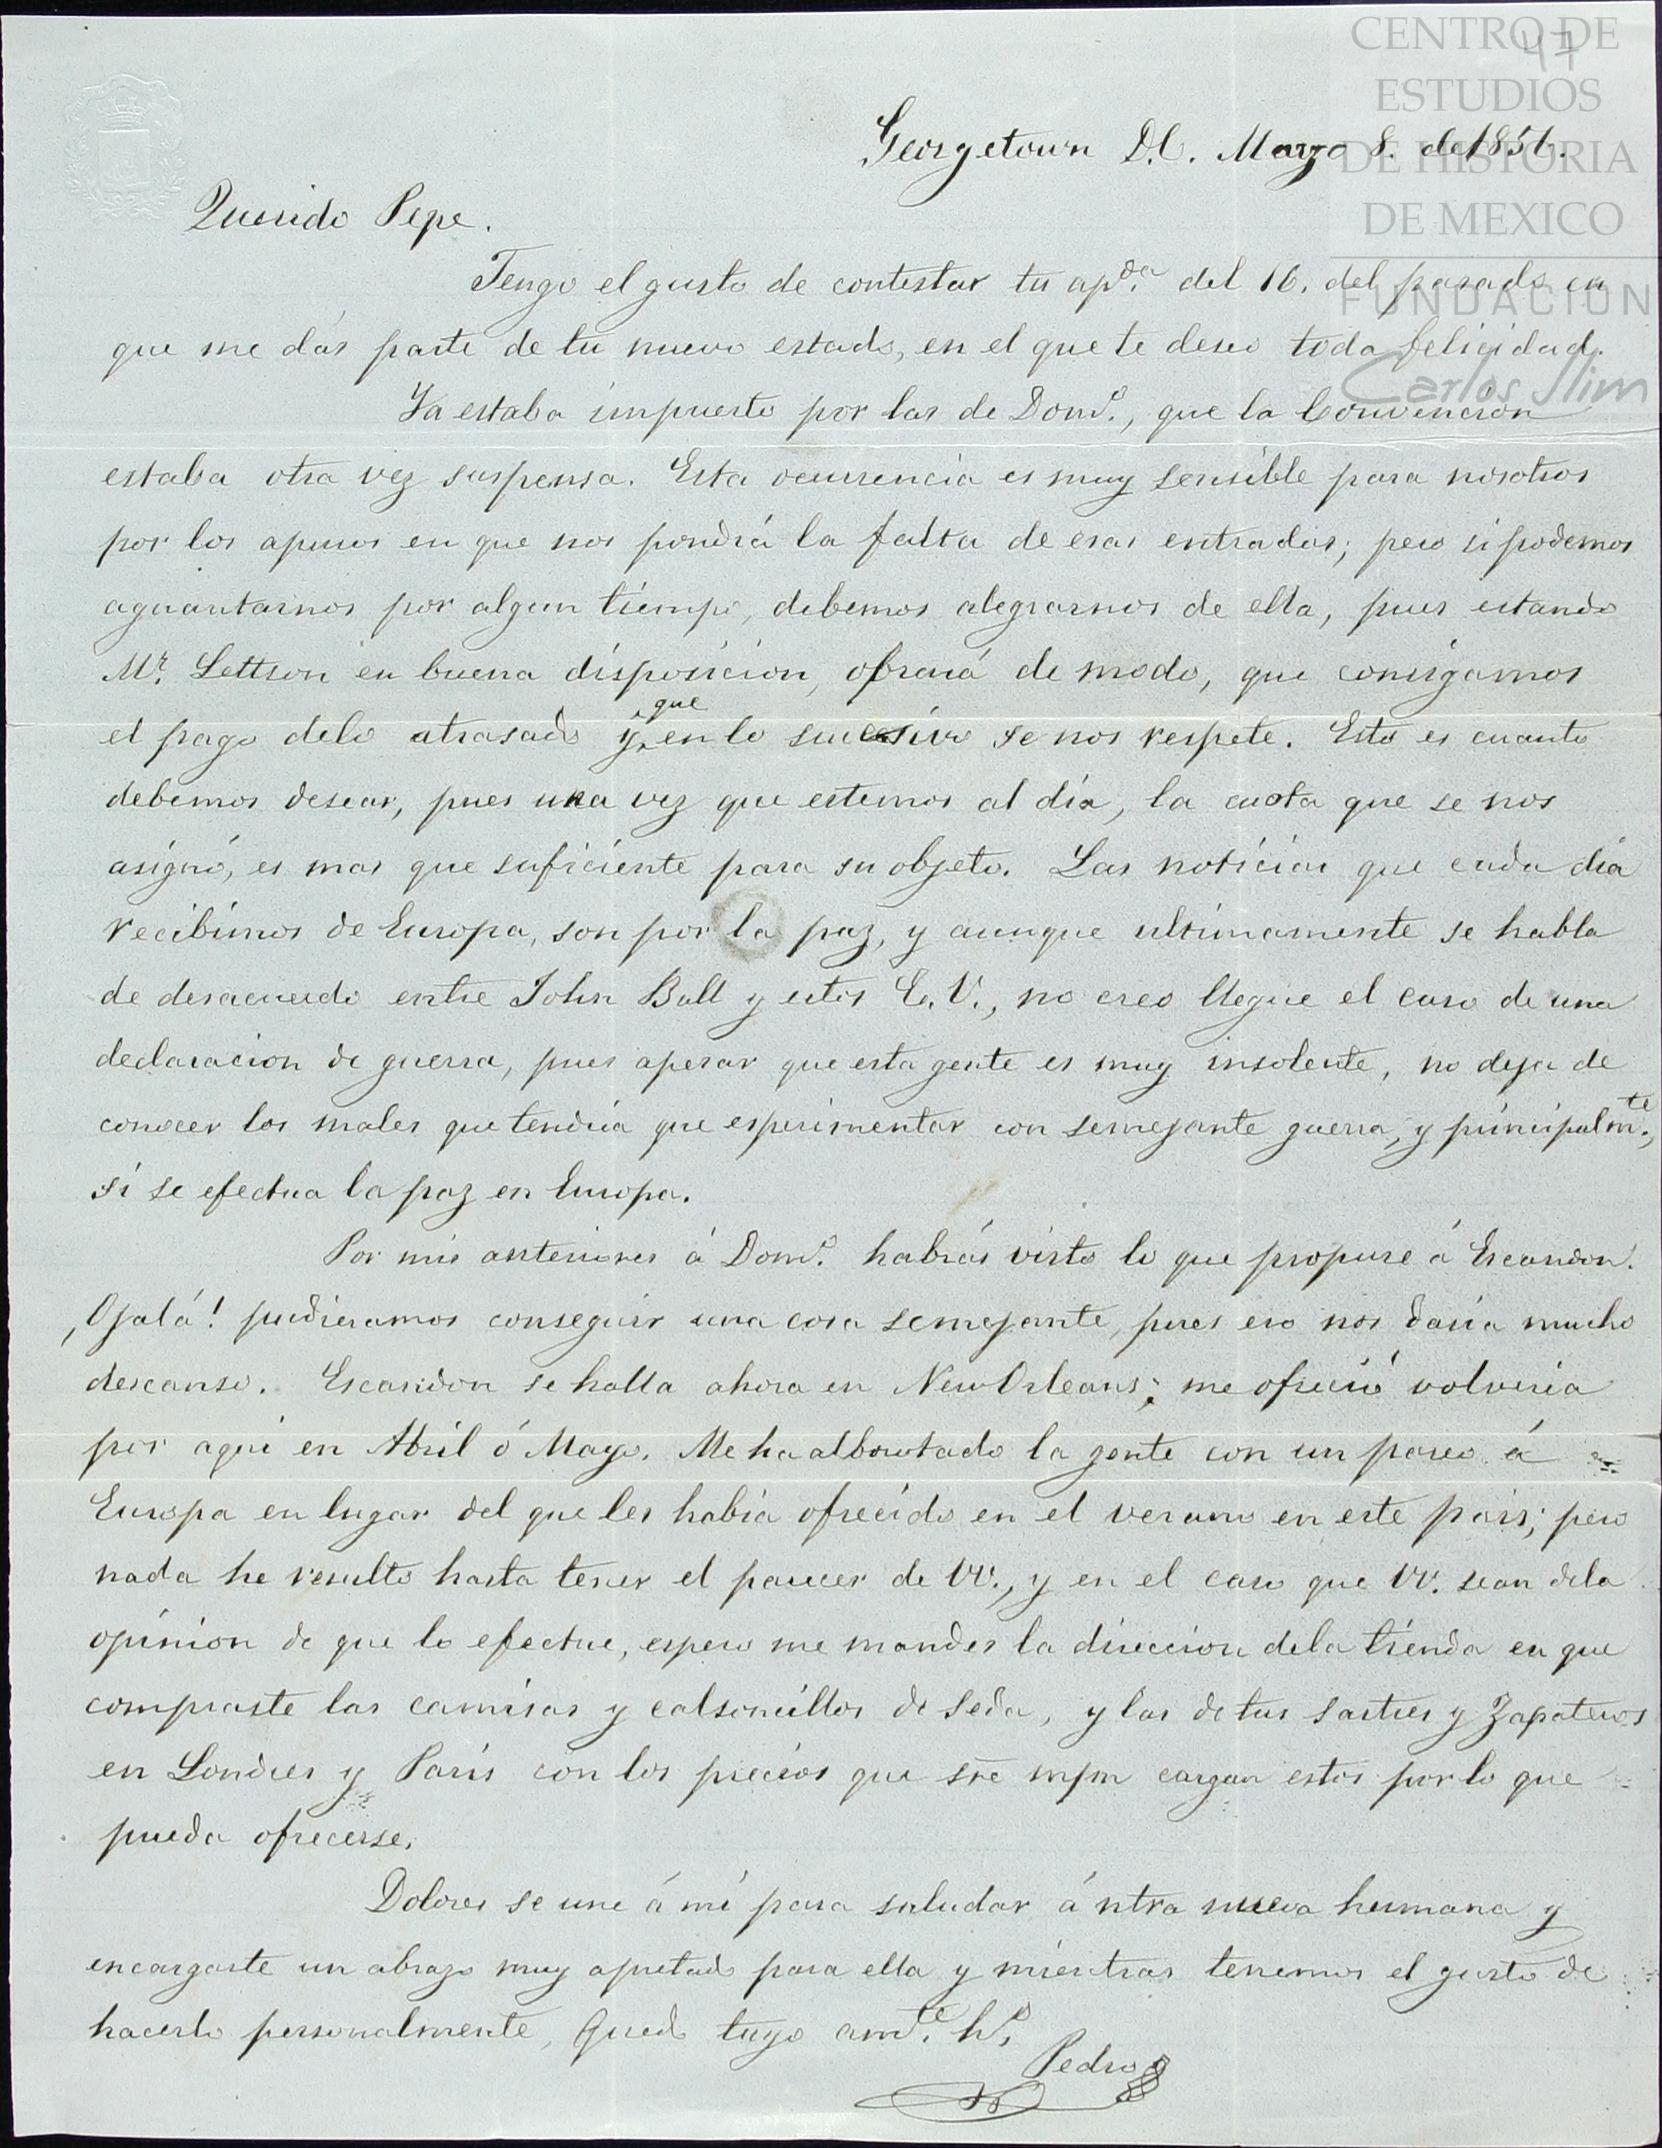 CENTRO DE
ESTUDIOS
DE HISTORIA
DE MEXICO
FUNDACION
Carlos Slim
47
Georgetown D.C. Marzo 8. de 1856.
Querido Pepe.
Tengo el gusto de contestar tu apda. del 16. del pasado en
que me dás parte de tu nuevo estado, en el que te deseo toda felicidad.
Ya estaba impuesto por las de Domo., que la Convencion
estaba otra vez suspensa. Esta ocurrencia es muy sensible para nosotros
por los apuros en que nos pondrá la falta de esas entradas; pero si podemos
aguantarnos por algun tiempo, debemos alegrarnos de ella, pues estando
Mr. Lettson en buena disposicion, obrará de modo, que consigamos
el pago delo atrasado y que en lo sucesivo se nos respete. Esto es cuanto
debemos desear, pues una vez que estemos al dia, la cuota que se nos
asignó, es mas que suficiente para su objeto. Las noticias que cada dia
recibimos de Europa, son por la paz, y aunque ultimamente se habla
de desacuerdo entre John Bull y estos E.U., no creo llegue el caso de una
declaracion de guerra, pues apesar que esta gente es muy insolente, no deja de
conocer los males que tendria que esperimentar con semejante guerra, y principalmte.,
si se efectua la paz en Europa.
Por mis anteriores á Domo. habrás visto lo que propuse á Escandon.
¡Ojalá! pudieramos conseguir una cosa semejante, pues eso nos daria mucho
descanso. Escandon se halla ahora en New Orleans; me ofreció volveria
por aqui en Abril ó Mayo. Me ha alborotado la gente con un paseo á
Europa en lugar del que les habia ofrecido en el verano en este pais; pero
nada he resulto hasta tener el parecer de VV., y en el caso que VV. sean dela
opinion de que lo efectue, espero me mandes la direccion dela tienda en que
compraste las camisas y calsoncillos de seda, y las de tus sastres y Zapateros
en Londres y Paris con los precios que sre mpm cargan estos por lo que
pueda ofrecerse.
Dolores se une á mi para saludar á ntra nueva hermana y
encargarte un abrazo muy apretado para ella y mientras tenemos el gusto de
hacerlo personalmente, Quedo tuyo amte. ho.
Pedro